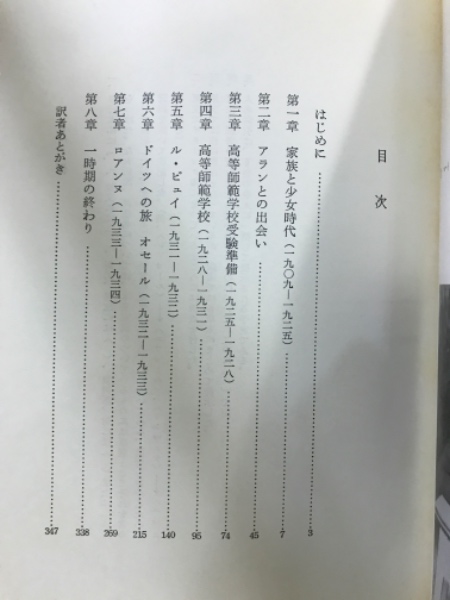 目次
はじめに……3
第一章 家族と少女時代(一九〇九―一九二五)……7
第二章 アランとの出会い……45
第三章 高等師範学校受験準備(一九二五―一九二八)……74
第四章 高等師範学校(一九二八―一九三一)……95
第五章 ル・ピュイ(一九三一―一九三二)……140
第六章 ドイツへの旅 オセール(一九三二―一九三三)……215
第七章 ロアンヌ(一九三三―一九三四)……269
第八章 一時期の終わり……338
訳者あとがき……347